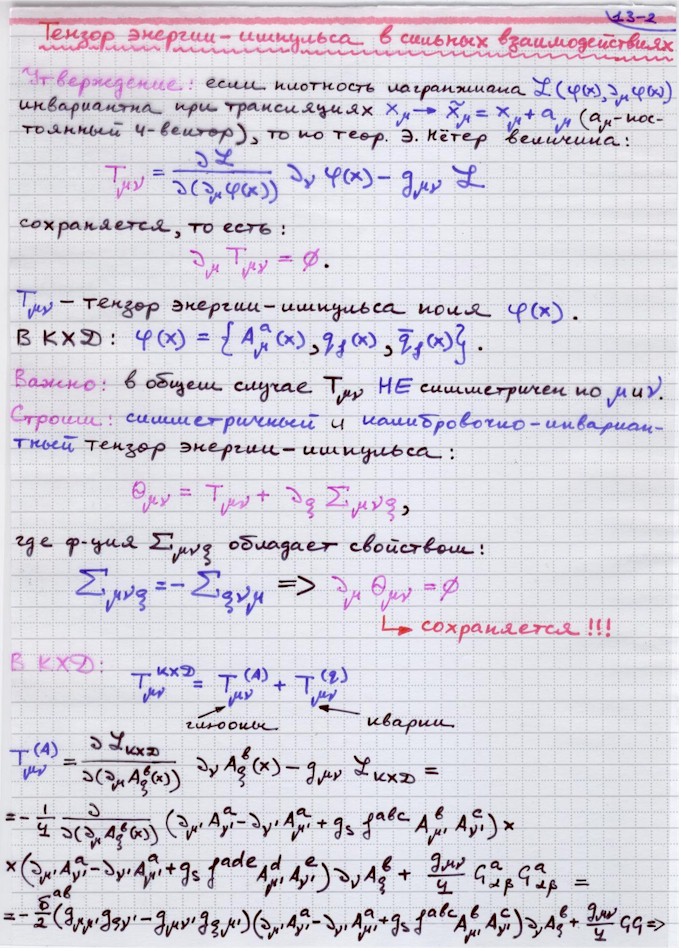 13-2
Тензор энергии-импульса в сильных взаимодействиях
Утверждение: если плотность лагранжиана ℒ(φ(x), ∂_μφ(x))
инвариантна при трансляциях x_μ → x̃_μ = x_μ + a_μ (a_μ-пос-
тоянный 4-вектор), то по теор. Э. Нётер величина:
T_μν = ∂ℒ/∂(∂_μφ(x)) ∂_ν φ(x) - g_μν ℒ
сохраняется, то есть:
∂_μ T_μν = ∅.
T_μν - тензор энергии-импульса поля φ(x).
В КХД: φ(x) = {A^a_μ(x), q_f(x), q̄_f(x)}.
Важно: в общем случае T_μν НЕ симметричен по μ и ν.
Строим: симметричный и калибровочно-инвариан-
тный тензор энергии-импульса:
Θ_μν = T_μν + ∂_ξ Σ_μνξ,
где ф-ция Σ_μνξ обладает свойством:
Σ_μνξ = - Σ_ξνμ => ∂_μ Θ_μν = ∅
↳ сохраняется !!!
В КХД:
T_μν^КХД = T_μν^(A) + T_μν^(q)
глюоны кварки
T_μν^(A) = ∂ℒ_КХД/∂(∂_μ A^b_ξ(x)) ∂_ν A^b_ξ(x) - g_μν ℒ_КХД =
= - 1/4 ∂/∂(∂_μ A^b_ξ(x)) (∂_μ' A^a_ν' - ∂_ν' A^a_μ' + g_s f^abc A^b_μ' A^c_ν') ×
× (∂_μ' A^a_ν' - ∂_ν' A^a_μ' + g_s f^ade A^d_μ' A^e_ν') ∂_ν A^b_ξ + g_μν/4 G^a_αβ G^a_αβ =
= - δ^ab/2 (g_μμ' g_ξν' - g_μν' g_ξμ') (∂_μ' A^a_ν' - ∂_ν' A^a_μ' + g_s f^abc A^b_μ' A^c_ν') ∂_ν A^b_ξ + g_μν/4 GG =>